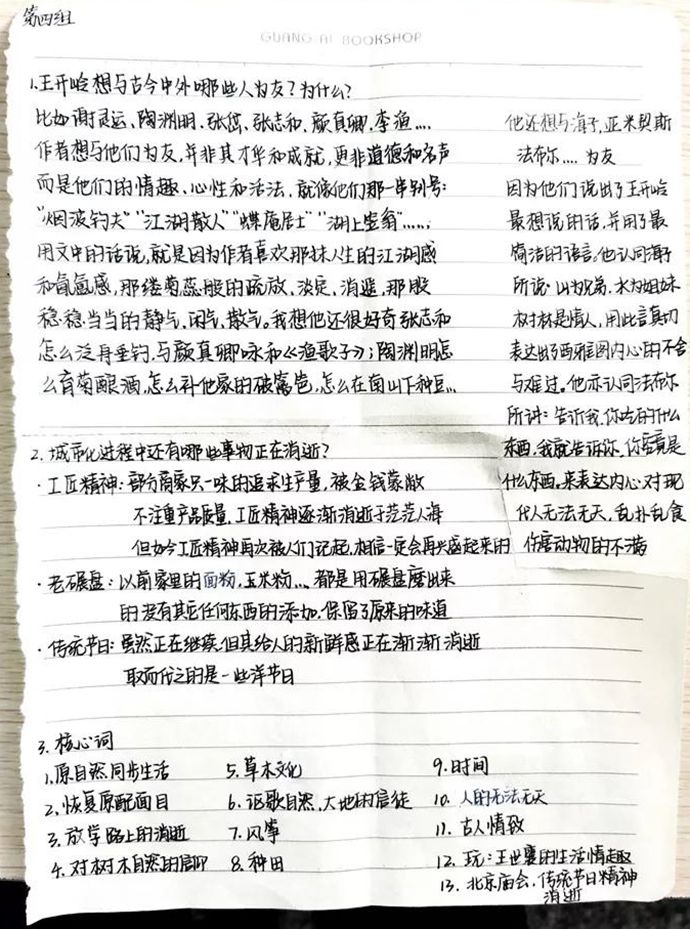 第四组
GUANG AI BOOKSHOP
1.王开岭想与古今中外哪些人为友?为什么?
比如谢灵运、陶渊明、张岱、张志和、颜真卿、李渔....
作者想与他们为友,并非其才华和成就,更非道德和名声
而是他们的情趣、心性和活法,就像他们那一串别号:
“烟波钓夫”“江湖散人”“蝶庵居士”“湖上笠翁”......
用文中的话说,就是因为作者喜欢那抹人生的江湖感
和氤氲感,那缕菊蕊般的疏放、淡定、逍遥,那股
稳稳当当的静气、闲气、散气。我想他还很好奇张志和
怎么泛舟垂钓,与颜真卿咏和《渔歌子》;陶渊明怎
么育菊酿酒,怎么补他家的破篱笆,怎么在南山下种豆...
他还想与海子,亚米契斯
法布尔....为友
因为他们说出了王开岭
最想说的话,并用了最
简洁的语言。他认同海子
所说:山为兄弟,水为姐妹
树林是情人,用此言真切
表达出了西雅图内心的不舍
与难过。他亦认同法布尔
所讲:告诉我,你吃的什么
东西,我就告诉你,你究竟是
什么东西。来表达内心对现
代人无法无天,乱扑乱食
伤害动物的不满
2.城市化进程中还有哪些事物正在消逝?
·工匠精神:部分商家只一味的追求生产量,被金钱蒙敝
不注重产品质量,工匠精神逐渐消逝于茫茫人海
但如今工匠精神再次被人们记起,相信一定会再兴盛起来的
·老碾盘:以前家里的面粉,玉米粉...都是用碾盘磨出来
的没有其它任何东西的添加,保留了原来的味道
·传统节日:虽然正在继续,但其给人的新鲜感正在渐渐消逝
取而代之的是一些洋节日
3.核心词
1.原自然同步生活
2.恢复原配面目
3.放学路上的消逝
4.对树木自然的信仰
5.草木文化
6.讴歌自然,大地的信徒
7.风筝
8.种田
9.时间
10.人的无法无天
11.古人情致
12.玩:王世襄的生活情趣
13.北京庙会,传统节日精神
消逝